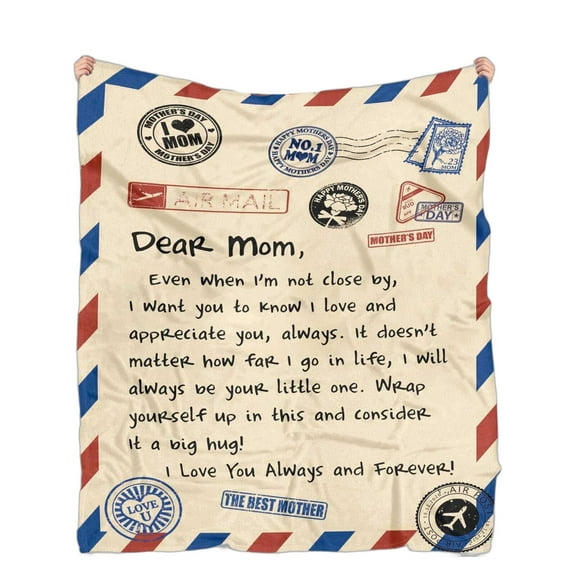 MOTHER'S DAY
I ❤ MOM
MOTHER'S DAY
HAPPY MOTHERS DAY
NO.1
MOM
HAPPY MOTHERS DAY
23
MOM
AIR MAIL
HAPPY MOTHER'S DAY
MOTHER'S
DAY
MOTHER'S DAY
Dear Mom,
Even when I'm not close by,
I want you to know I love and
appreciate you, always. It doesn't
matter how far I go in life, I will
always be your little one. Wrap
yourself up in this and consider
it a big hug!
I Love You Always and Forever!
LOVE
U
THE BEST MOTHER
AIR POST